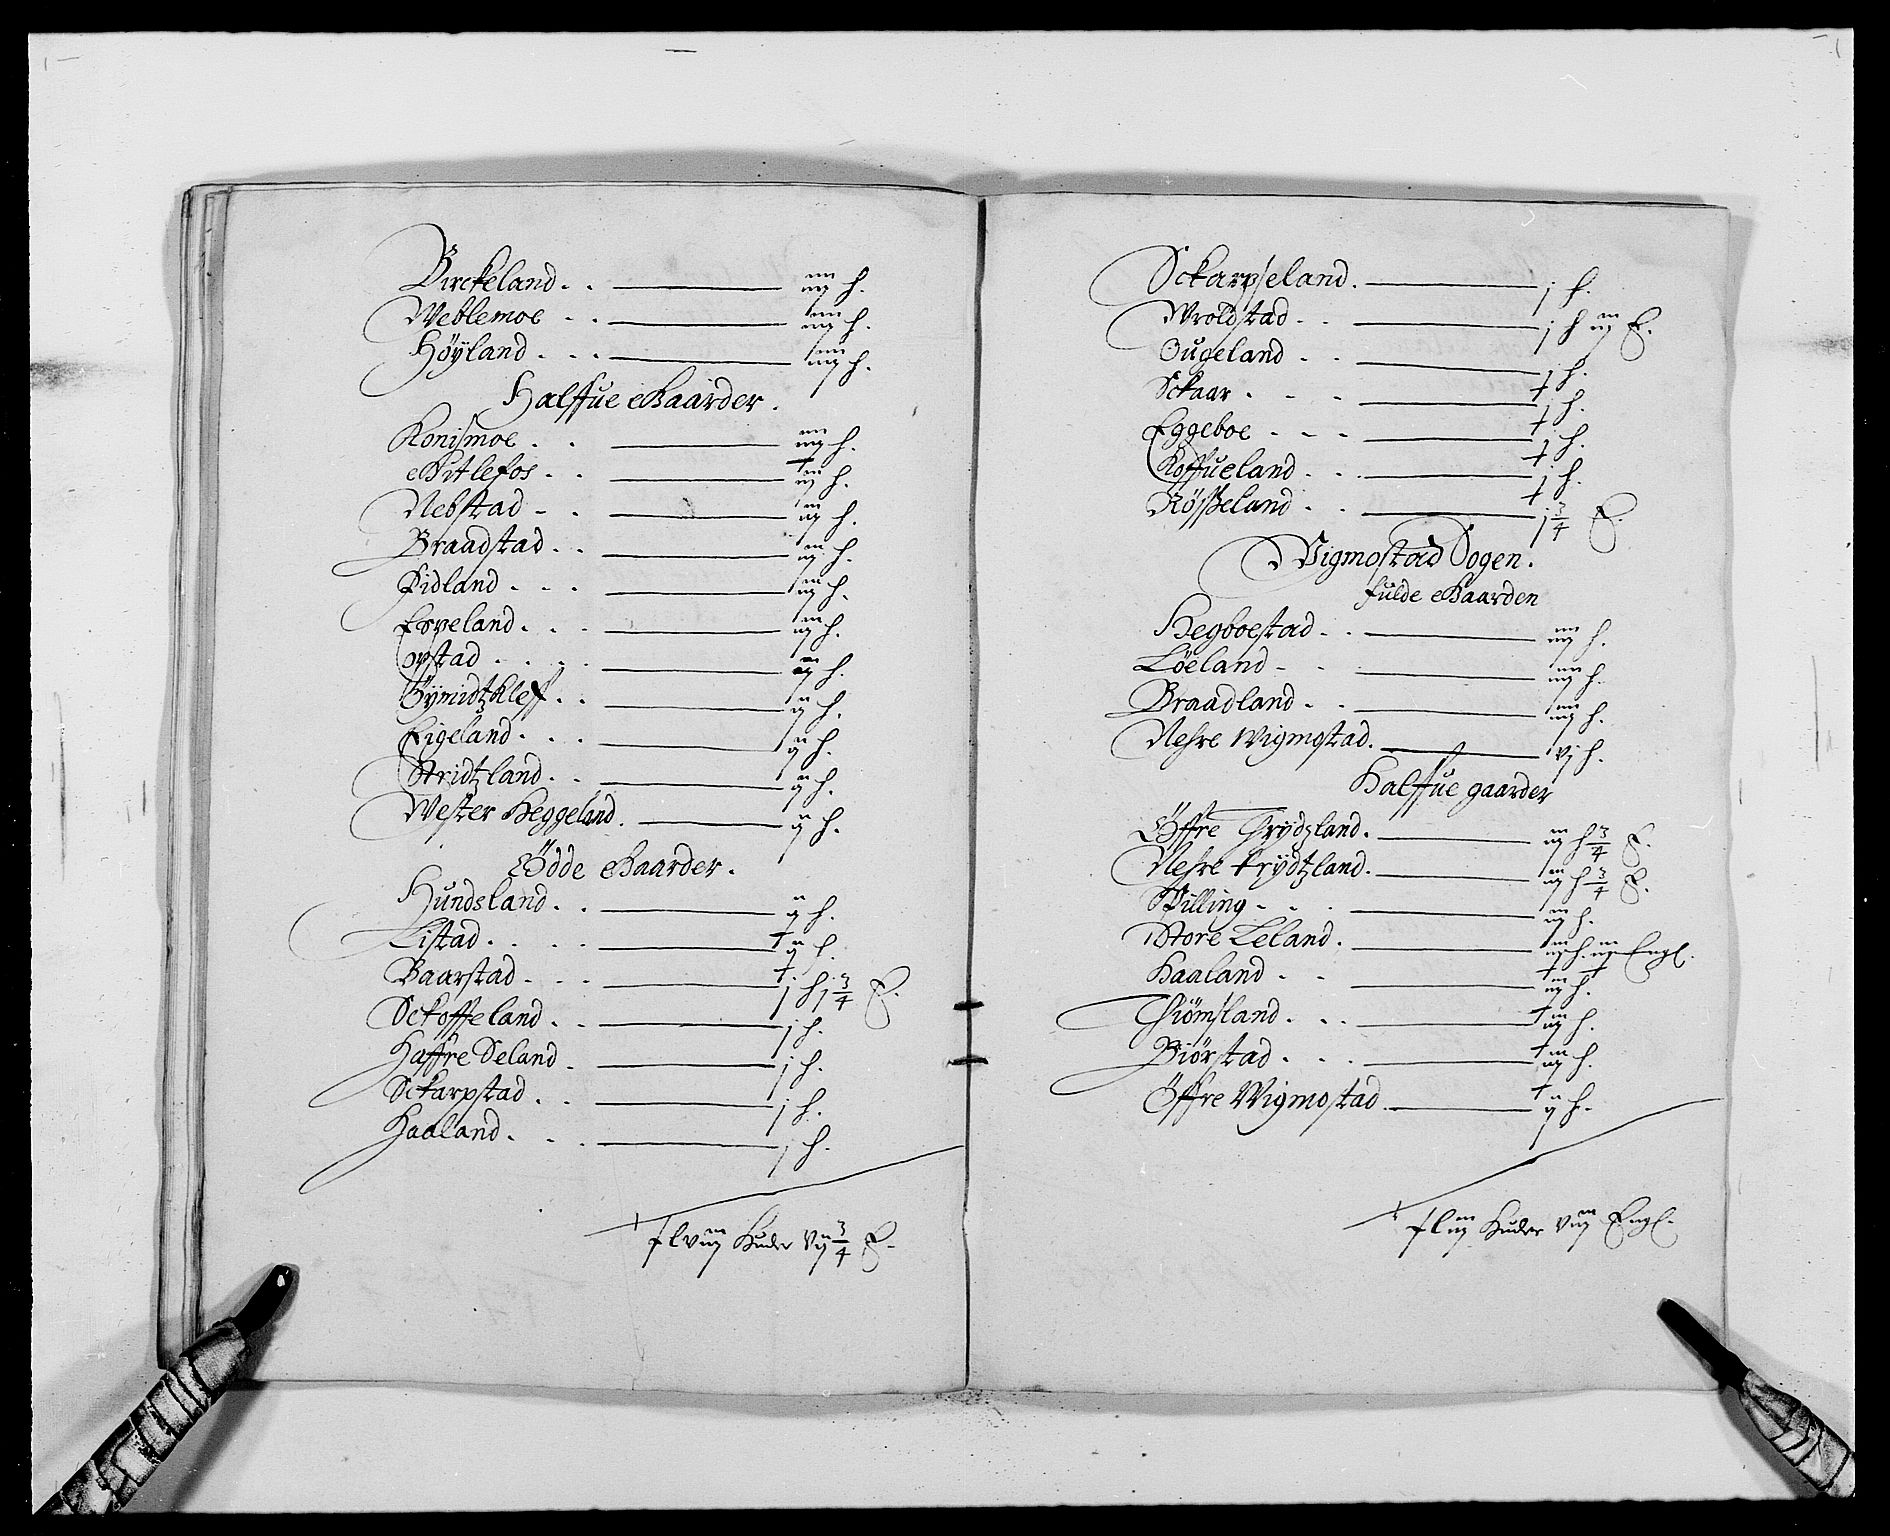 Birckeland. . iiij h.
Weblemoe . . iiij h.
Höÿland . . . iiij h.
Halffue Gaarder.
Konismoe . . iiij h.
Gitlefos . . iij h.
Nebstad . . iij h.
Braadstad . . iij h.
Fidland . . . iij h.
Espeland . . . iij h.
Opstad . . . . iij h.
Gÿmidtzkleff . . ij h.
Eigeland . . . ij h.
Stridtzland . . ij h.
Wester Heggeland. ij h.
Ödde Gaarder.
Hundsland . . ij h.
Listad . . . . ij h.
Baarstad . . . j h j 3/4 E.
Sckoffeland . . j h.
Haffre Seland . j h.
Sckarpstad . . j h.
Haaland . . . j h.
lviij Huder vij 3/4 E.
Sckarpseland. j h.
Wroldstad . . j h iij E.
Ougeland . . j h.
Sckaar . . . j h.
Eggeboe . . . j h.
Koffueland . . j h.
Rösseland . . j 3/4 E.
Vigmostad Sogen.
fulde Gaarden
Hegboestad . . iiij h.
Löeland . . iiij h.
Braadland . . iiij h.
Nehre Wigmostad. vj h.
Halffue gaarder
Öffre Trÿdzland. iij h 3/4 E.
Nehre trÿdtzland. iij h 3/4 E.
Spilling . . . iij h.
Store Leland. iij h. iij Engl.
Haaland . . iij h.
Thiömsland . . . iij h.
Biörstad . . . iij h.
Öffre Wigmostad. ij h.
liij Huder viij Engl.